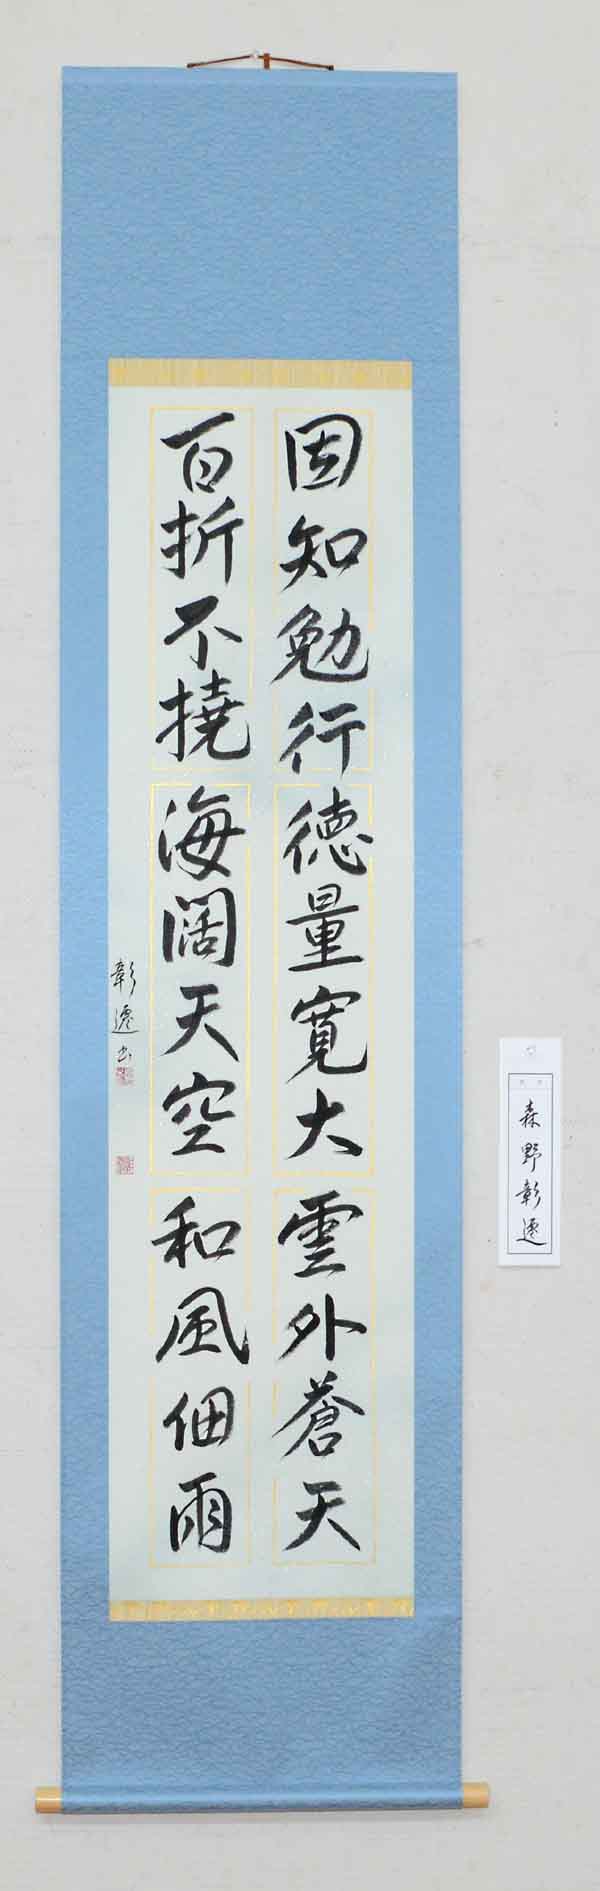 困知勉行 徳量寛大 雲外蒼天
百折不撓 海闊天空 和風細雨
彰 書
森野彰